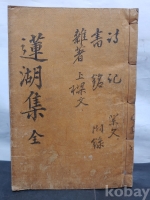 蓮湖集 全
詩 記
書 銘
雜著 上樑文
祭文
附錄
kobay